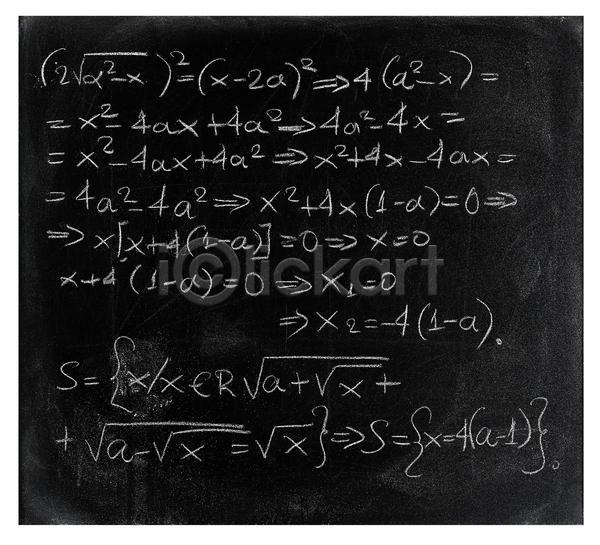 (2√a²-x)²=(x-2a)²⇒4(a²-x)=
=x²-4ax+4a²⇒4a²-4x=
=x²-4ax+4a²⇒x²+4x-4ax=
=4a²-4a²⇒x²+4x(1-a)=0⇒
⇒x[x+4(1-a)]=0⇒x=0
x+4(1-a)=0⇒x₁=0
⇒x₂=-4(1-a).
S={x/x∈R√a+√x+
+√a-√x=√x}⇒S={x=4(a-1)}.
iclickart